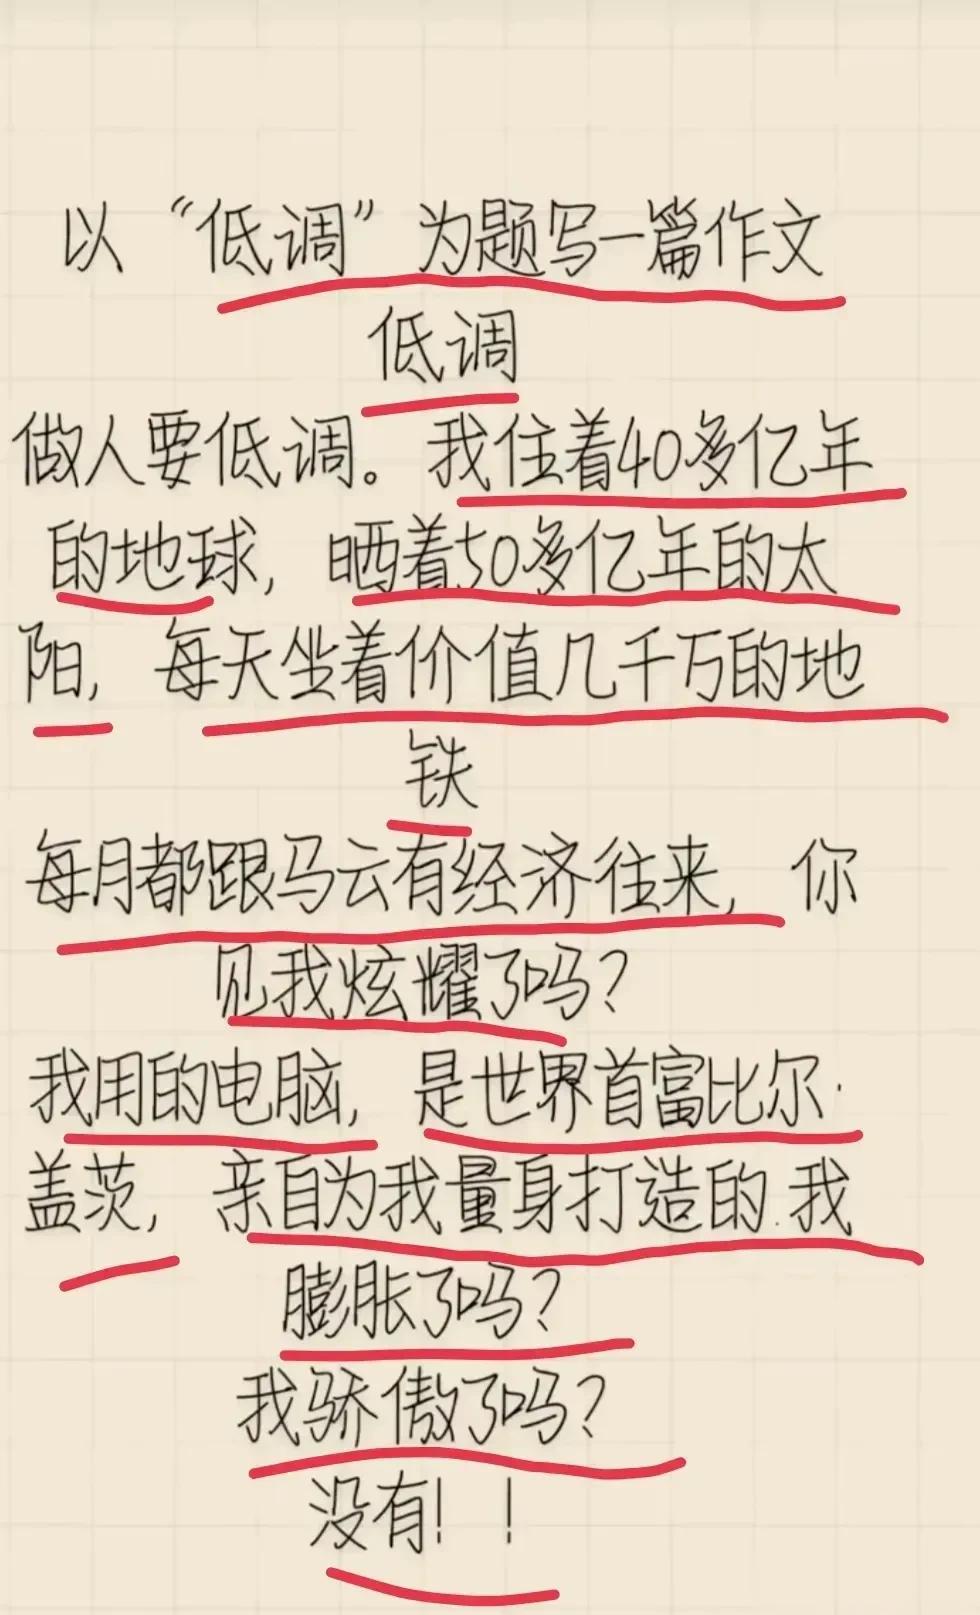 以“低调”为题写一篇作文
低调
做人要低调。我住着40多亿年
的地球,晒着50多亿年的太
阳,每天坐着价值几千万的地
铁
每月都跟马云有经济往来,你
见我炫耀了吗?
我用的电脑,是世界首富比尔·
盖茨,亲自为我量身打造的.我
膨胀了吗?
我骄傲了吗?
没有!!